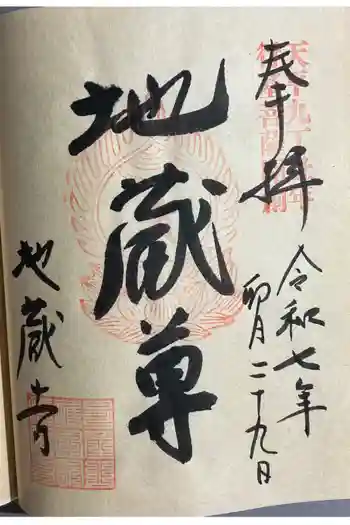 奉拝
令和七年
卯月二十九日
地蔵尊
地蔵寺